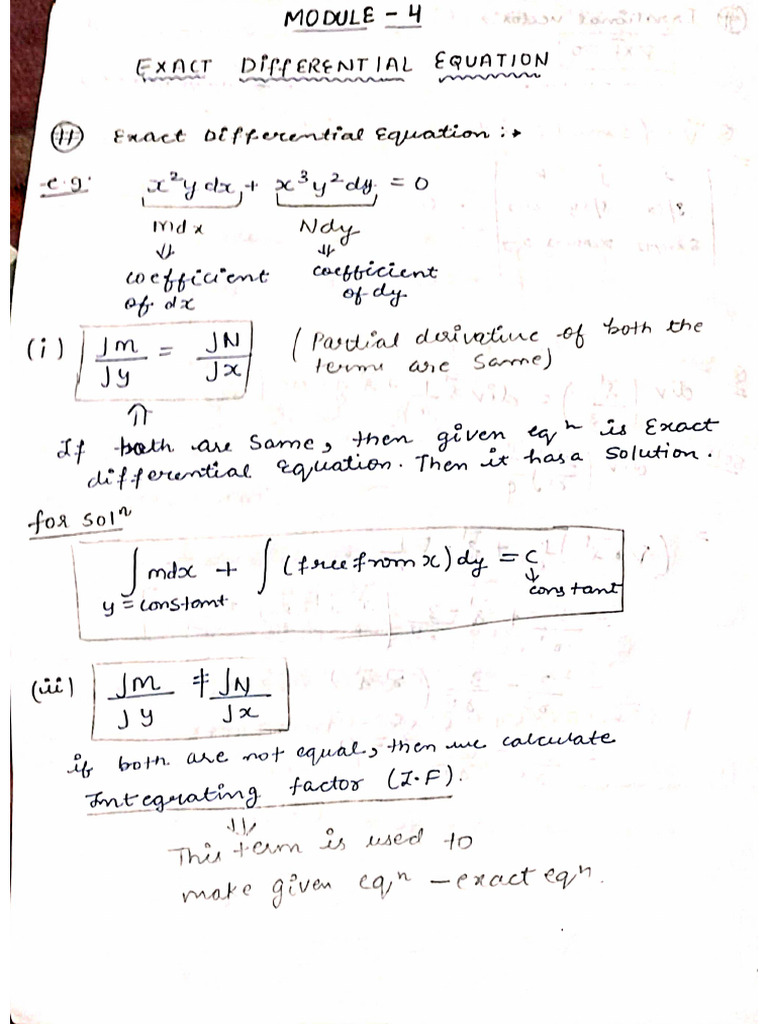 MODULE - 4
EXACT DIFFERENTIAL EQUATION
(#) Exact Differential Equation :→
e.g. x²y dx + x³y² dy = 0
Mdx Ndy
⇓ ⇓
coefficient coefficient
of dx of dy
(i) ∂M/∂y = ∂N/∂x (Partial derivative of both the
terms are same)
⇑
If both are same, then given eqⁿ is Exact
differential equation. Then it has a solution.
for solⁿ
∫ mdx + ∫ (free from x) dy = C
y = constant ↓ constant
(ii) ∂M/∂y ≠ ∂N/∂x
if both are not equal, then we calculate
Integrating factor (I.F).
⇓
This term is used to
make given eqⁿ - exact eqⁿ.